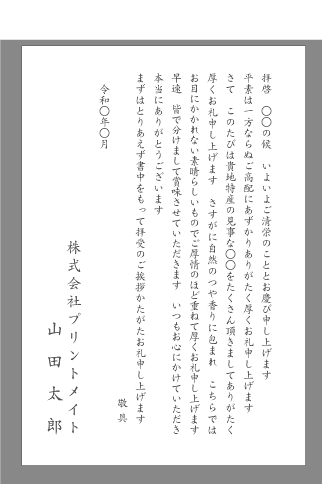 拝啓　〇〇の候　いよいよご清栄のこととお慶び申し上げます
平素は一方ならぬご高配にあずかりありがたく厚くお礼申し上げます
さて　このたびは貴地特産の見事な〇〇をたくさん頂きましてありがたく
厚くお礼申し上げます　さすがに自然のつや香りに包まれ　こちらでは
お目にかかれない素晴らしいものでご厚情のほど重ねて厚くお礼申し上げます
早速　皆で分けまして賞味させていただきます　いつもお心にかけていただき
本当にありがとうございます
まずはとりあえず書中をもって拝受のご挨拶かたがたお礼申し上げます
敬具
令和〇年〇月
株式会社プリントメイト
山田太郎